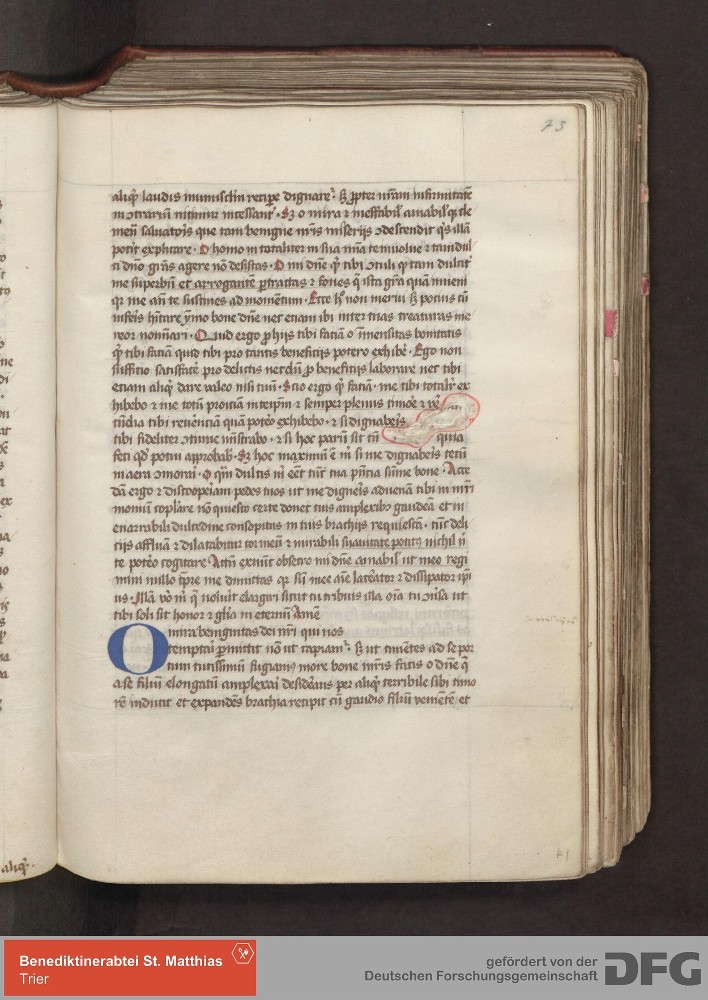 73
aliqͥ laudis munusculū recipe dignare. Sꝫ ꝓpter nr̄am infirmitatē
in ꝯtrariū nitimur incessant͛. Sꝫ o mira ⁊ ineffabil͛ amabil͛ qꝫ cle
men̄ saluatoris que tam benigne nr̄is miserijs ꝯdescendit qͥs illā
potit explicare. O homo in totaliter in sua
ti dn̄o gr̄as agere nō desistas. O mi dn̄e qͥ tibi ꝯtuli qͥ tam dulcit͛
me superbū et arrogantē ꝑtractas ⁊ foues qͣ ista gr̄a quā inueni
qr me an̄ te sustines ad momentum. Ecce hͦ non merui sꝫ pocius cū
inferis hītare ymo bone dn̄e nec etiam ibi inter tuas creaturas me
reor noīari. Quid ergo ꝓ hijs tibi faciā o inmensitas bonitatis
qͥ tibi faciā quid tibi pro tantis beneficijs potero exhibē. Ego non
sufficio satisfacē pro delictis necdū ꝓ beneficijs laborare nec tibi
etiam aliqͥ dare valeo nisi tuū. Scio ergo qͥ faciā. me tibi totalr͛ ex
hibebo ⁊ me totū proiciā in ⁊ semper plenus timōe ⁊ re
tibi reuerēciā quā potēo exhibebo. ⁊ si dignaberis
tibi fideliter ꝯtinue mīstrabo. ⁊ si hoc parū sit tū quia
feci qd̓ potui approbab̓. Sꝫ hoc maximū ē m̄ si me dignaberis tecū
in aera ꝯmorari. O qm̄ dulcis m̄ eēt tūc tua pn̄cia sūme bone. Acce
dā ergo ⁊ discoopeiam pedes tuos ut me digneris adueniā tibi in mr̄i
monium copulare nō quiesco certe donec tuis amplexibꝫ gaudeā et in
enarrabili dulcedine consopitus in tuis brachijs requiescā. tūc deli
cijs affluā ⁊ dilatabitur cor meū ⁊ mirabili suauitate potitꝰ nichil nͥ
te potēo cogitare. Attn̄ exnūc obsecro mi dn̄e amabil͛ ut meo regi
mini nullo tp̄re me dimittas qr sū mee aīe latēator ⁊ dissipator ipī
us. Illā vͦ m̄ qͥ noluīt elargiri sicut tu tribuis illa oīa tu ꝯsua ut
tibi soli sit honor ⁊ gl̄ia in eternū Amē
O mira benignitas dei nr̄i qui nos
temptari ꝑmittit nō ut capiamͬ. Sꝫ ut timētes ad se por
tum tutissimū fugiamꝰ more bone mr̄is facis o dn̄e qͣ
a se filiū elongatū amplexari desiderans per aliqͥ terribile sibi timo
rē inducit et expandēs brachia recipit cū gaudio filiū venientē et
aliqͥ.
Benediktinerabtei St. Matthias
Trier
gefördert von der
Deutschen Forschungsgemeinschaft
DFG